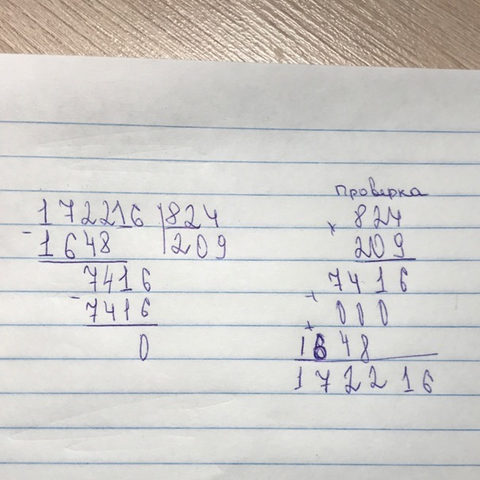 172216 | 824
- 1648 | 209
7416
- 7416
0
Проверка
× 824
209
7416
+ 000
+ 1648
172216